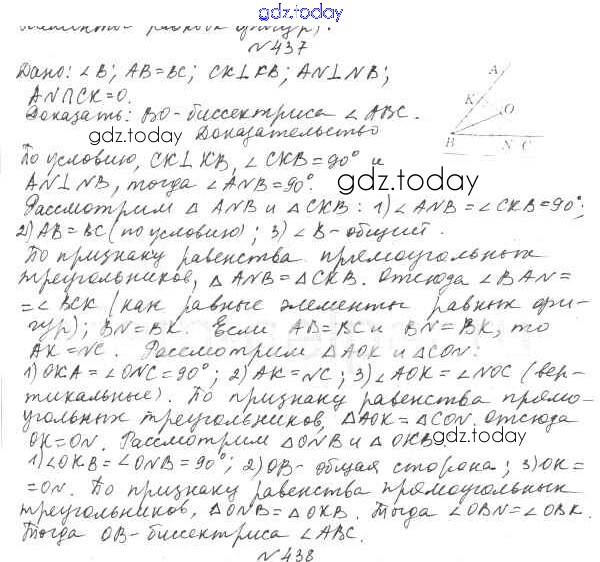 gdz.today
элементы равных фигур).
№437
Дано: ∠B; AB=BC; CK⊥KB; AN⊥NB;
AN∩CK=O.
Доказать: BO-биссектриса ∠ABC.
gdz.today Доказательство
A
K
O
B N C
По условию, CK⊥KB, ∠CKB=90° и
AN⊥NB, тогда ∠ANB=90°. gdz.today
Рассмотрим △ANB и △CKB: 1)∠ANB=∠CKB=90°;
2) AB=BC (по условию); 3) ∠B-общий.
По признаку равенства прямоугольных
треугольников, △ANB=△CKB. Отсюда ∠BAN=
=∠BCK (как равные элементы равных фи-
гур); BN=BK. Если AB=BC и BN=BK, то
AK=NC. Рассмотрим △AOK и △CON:
1) OKA=∠ONC=90°; 2) AK=NC; 3) ∠AOK=∠NOC (вер-
тикальные). По признаку равенства прямо-
угольных треугольников, △AOK=△CON. Отсюда
OK=ON. Рассмотрим △ONB и △OKB
gdz.today
1)∠OKB=∠ONB=90°; 2) OB-общая сторона; 3) OK=
=ON. По признаку равенства прямоугольных
треугольников, △ONB=△OKB. Тогда ∠OBN=∠OBK.
Тогда OB-биссектриса ∠ABC.
№438